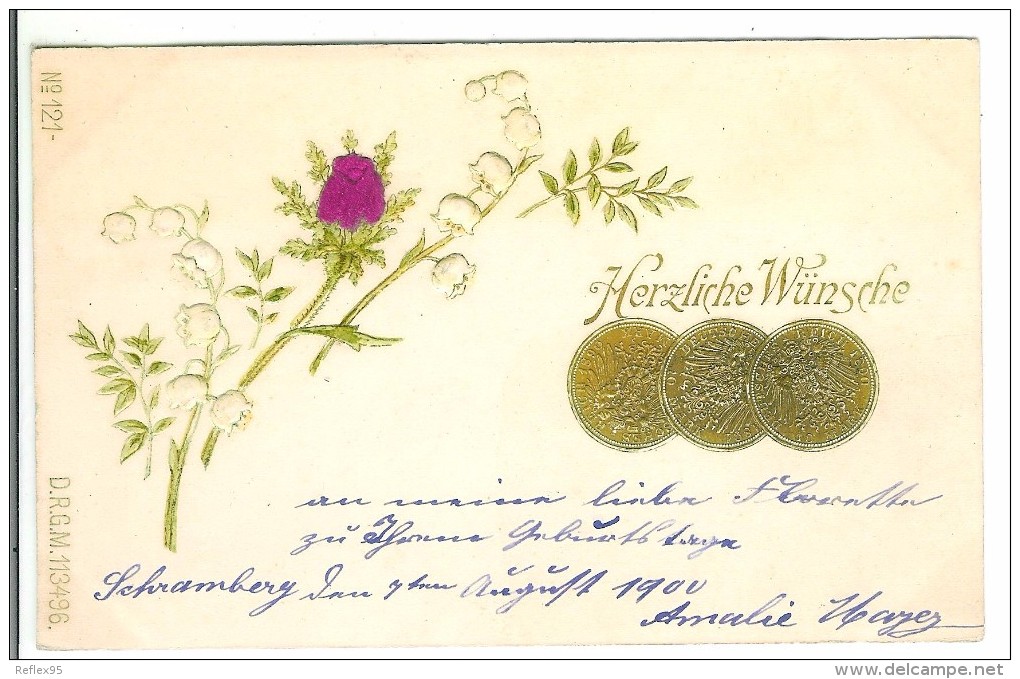 No 121-
Herzliche Wünsche
an meine liebe Florette
zu Ihrem Geburtstage
Schramberg den 7ten August 1900
Amalie
D.R.G.M. 113496.
Reflex95
www.delcampe.net